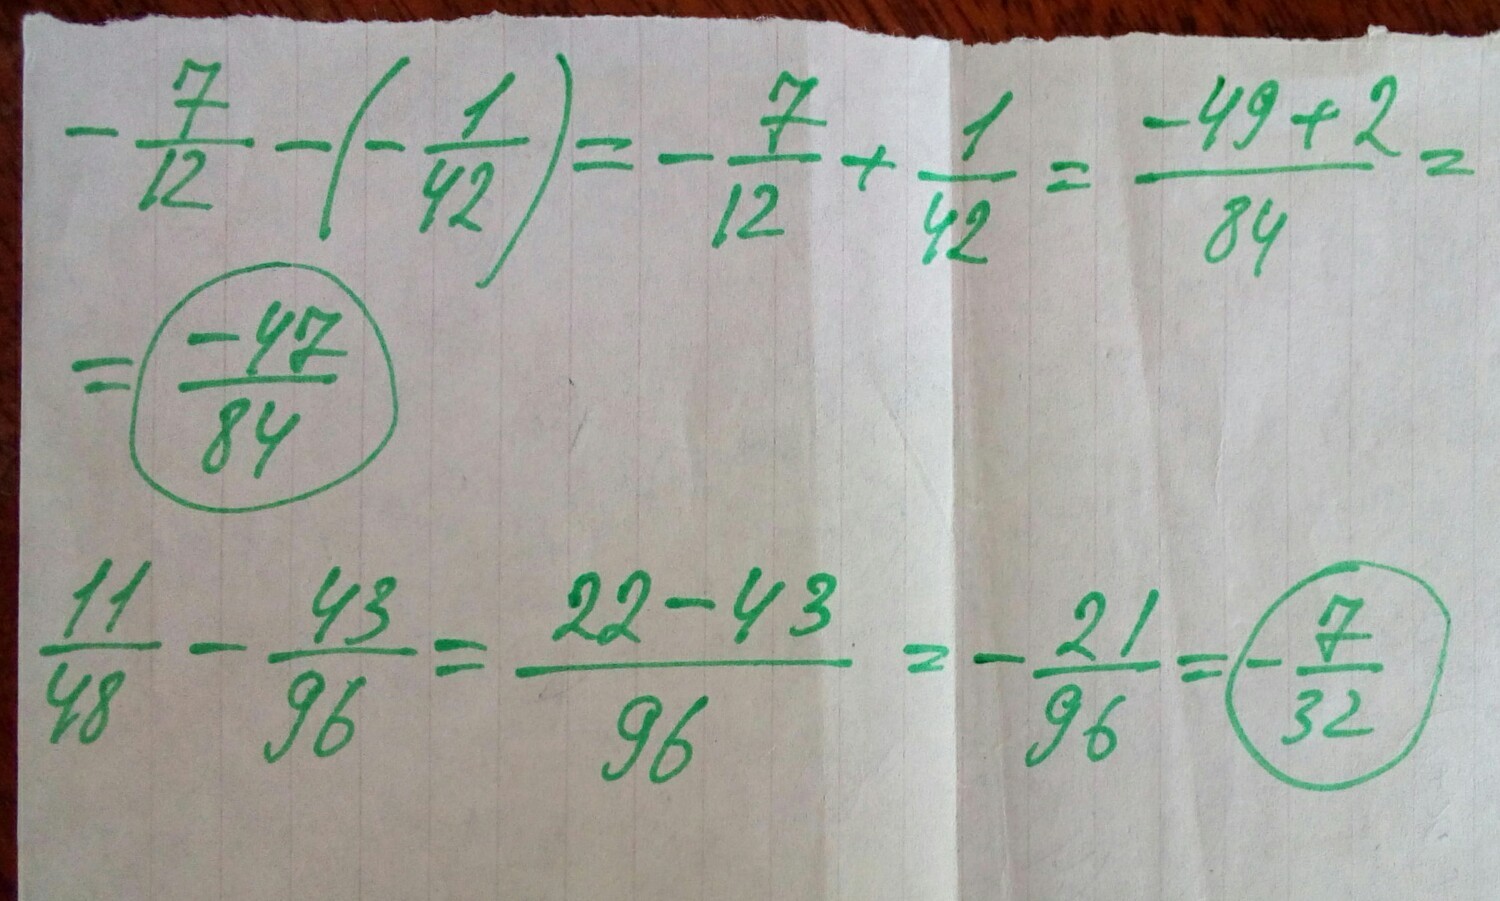 -7/12 - (-1/42) = -7/12 + 1/42 = (-49+2)/84 =
= -47/84
11/48 - 43/96 = (22-43)/96 = -21/96 = -7/32